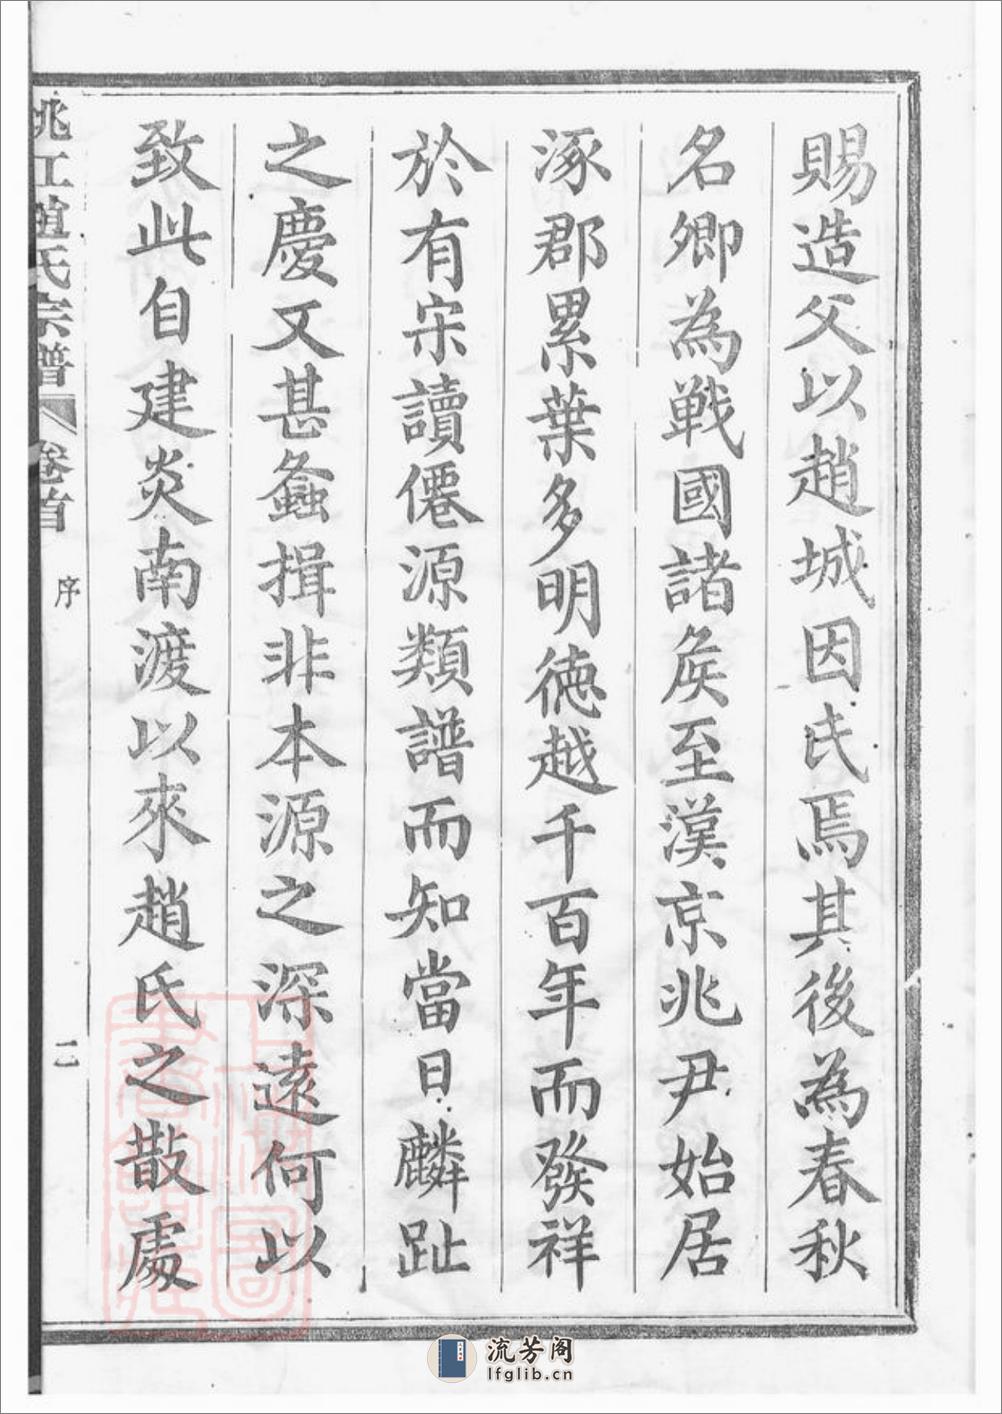 賜造父以趙城因氏焉其後為春秋
名卿為戰國諸矦至漢京兆尹始居
涿郡累葉多明德越千百年而發祥
於有宋讀僊源類譜而知當日麟趾
之慶又甚螽揖非本源之深遠何以
致此自建炎南渡以來趙氏之散處
姚江趙氏宗譜 卷首 序 二
流芳阁
lfglib.cn